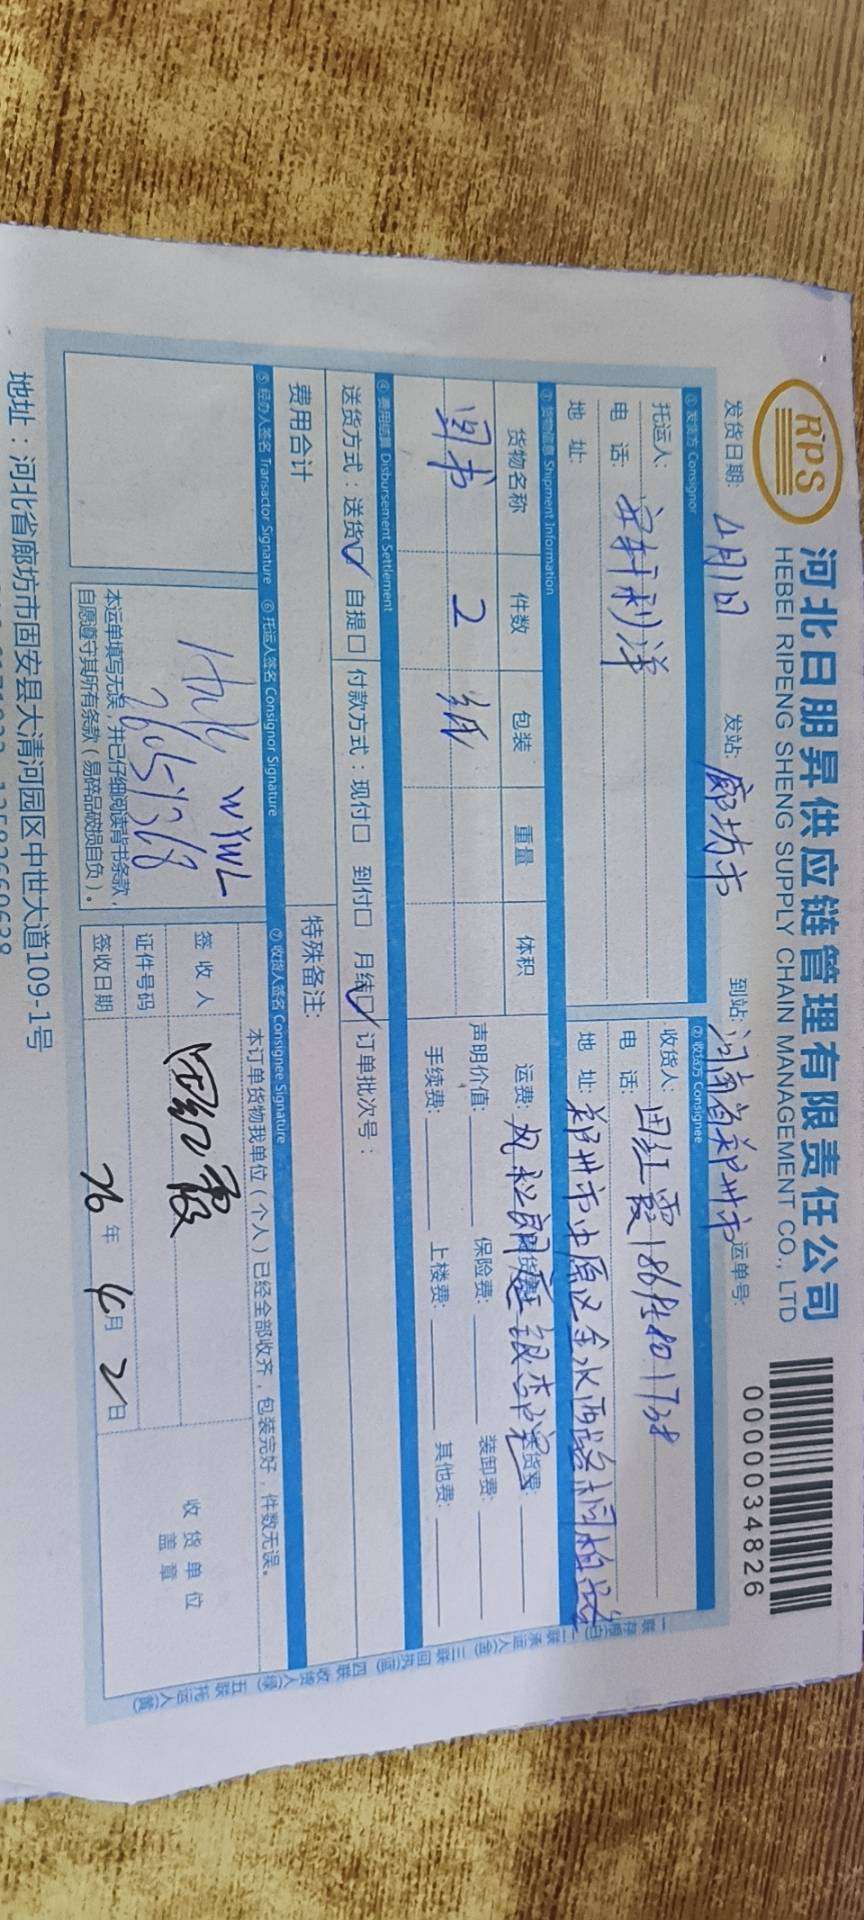 RiPS
河北日朋昇供应链管理有限责任公司
HEBEI RIPENG SHENG SUPPLY CHAIN MANAGEMENT CO., LTD
0000034826
发货日期: 4月1日 发站: 廊坊市 到站: 河南省郑州市 运单号:
① 发货方 Consignor
② 收货方 Consignee
托运人:
收货人: 田红霞
电 话:
电 话:
地 址:
地 址: 郑州市中原区金水西路桐柏路
③ 货物信息 Shipment Information
货物名称 件数 包装 重量 体积
图书 2 纸
运费: 送货费:
声明价值: 保险费: 装卸费:
手续费: 上楼费: 其他费:
④ 费用结算 Disbursement Settlement
送货方式：送货☑ 自提□ 付款方式：现付□ 到付□ 月结☑ 订单批次号：
费用合计
特殊备注：
⑤ 经办人签名 Transactor Signature
⑥ 托运人签名 Consignor Signature
⑦ 收货人签名 Consignee Signature
WYWL
本运单填写无误，并已仔细阅读背书条款，
自愿遵守其所有条款（易碎品破损自负）。
本订单货物我单位（个人）已经全部收齐，包装完好，件数无误。
签 收 人 田红霞
证件号码
签收日期 26年4月2日
收 货 单 位
盖 章
一联存根(白) 二联承运人(金) 三联回执(蓝) 四联收货人(绿) 五联托运人(黄)
地址：河北省廊坊市固安县大清河园区中世大道109-1号